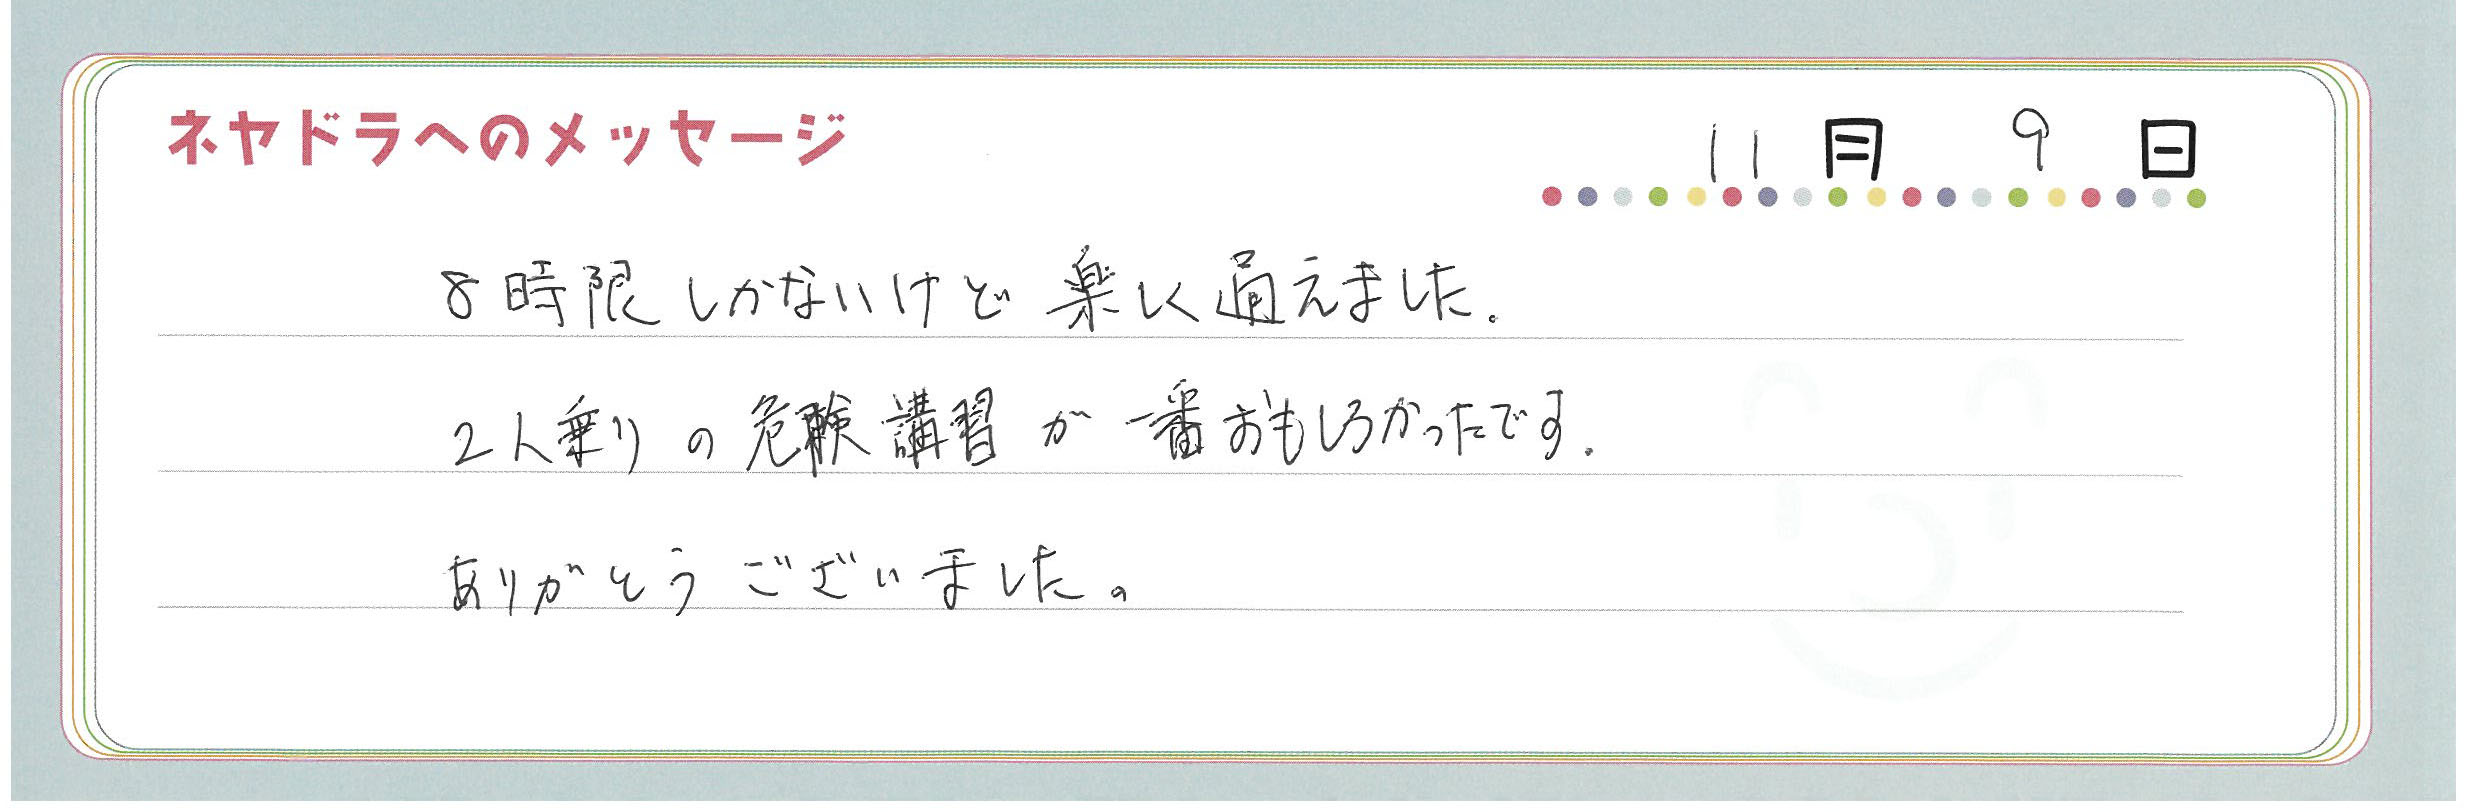 ネヤドラへのメッセージ
11月 9日
8時限しかないけど楽しく通えました。
2人乗りの危険講習が一番おもしろかったです.
ありがとうございました。